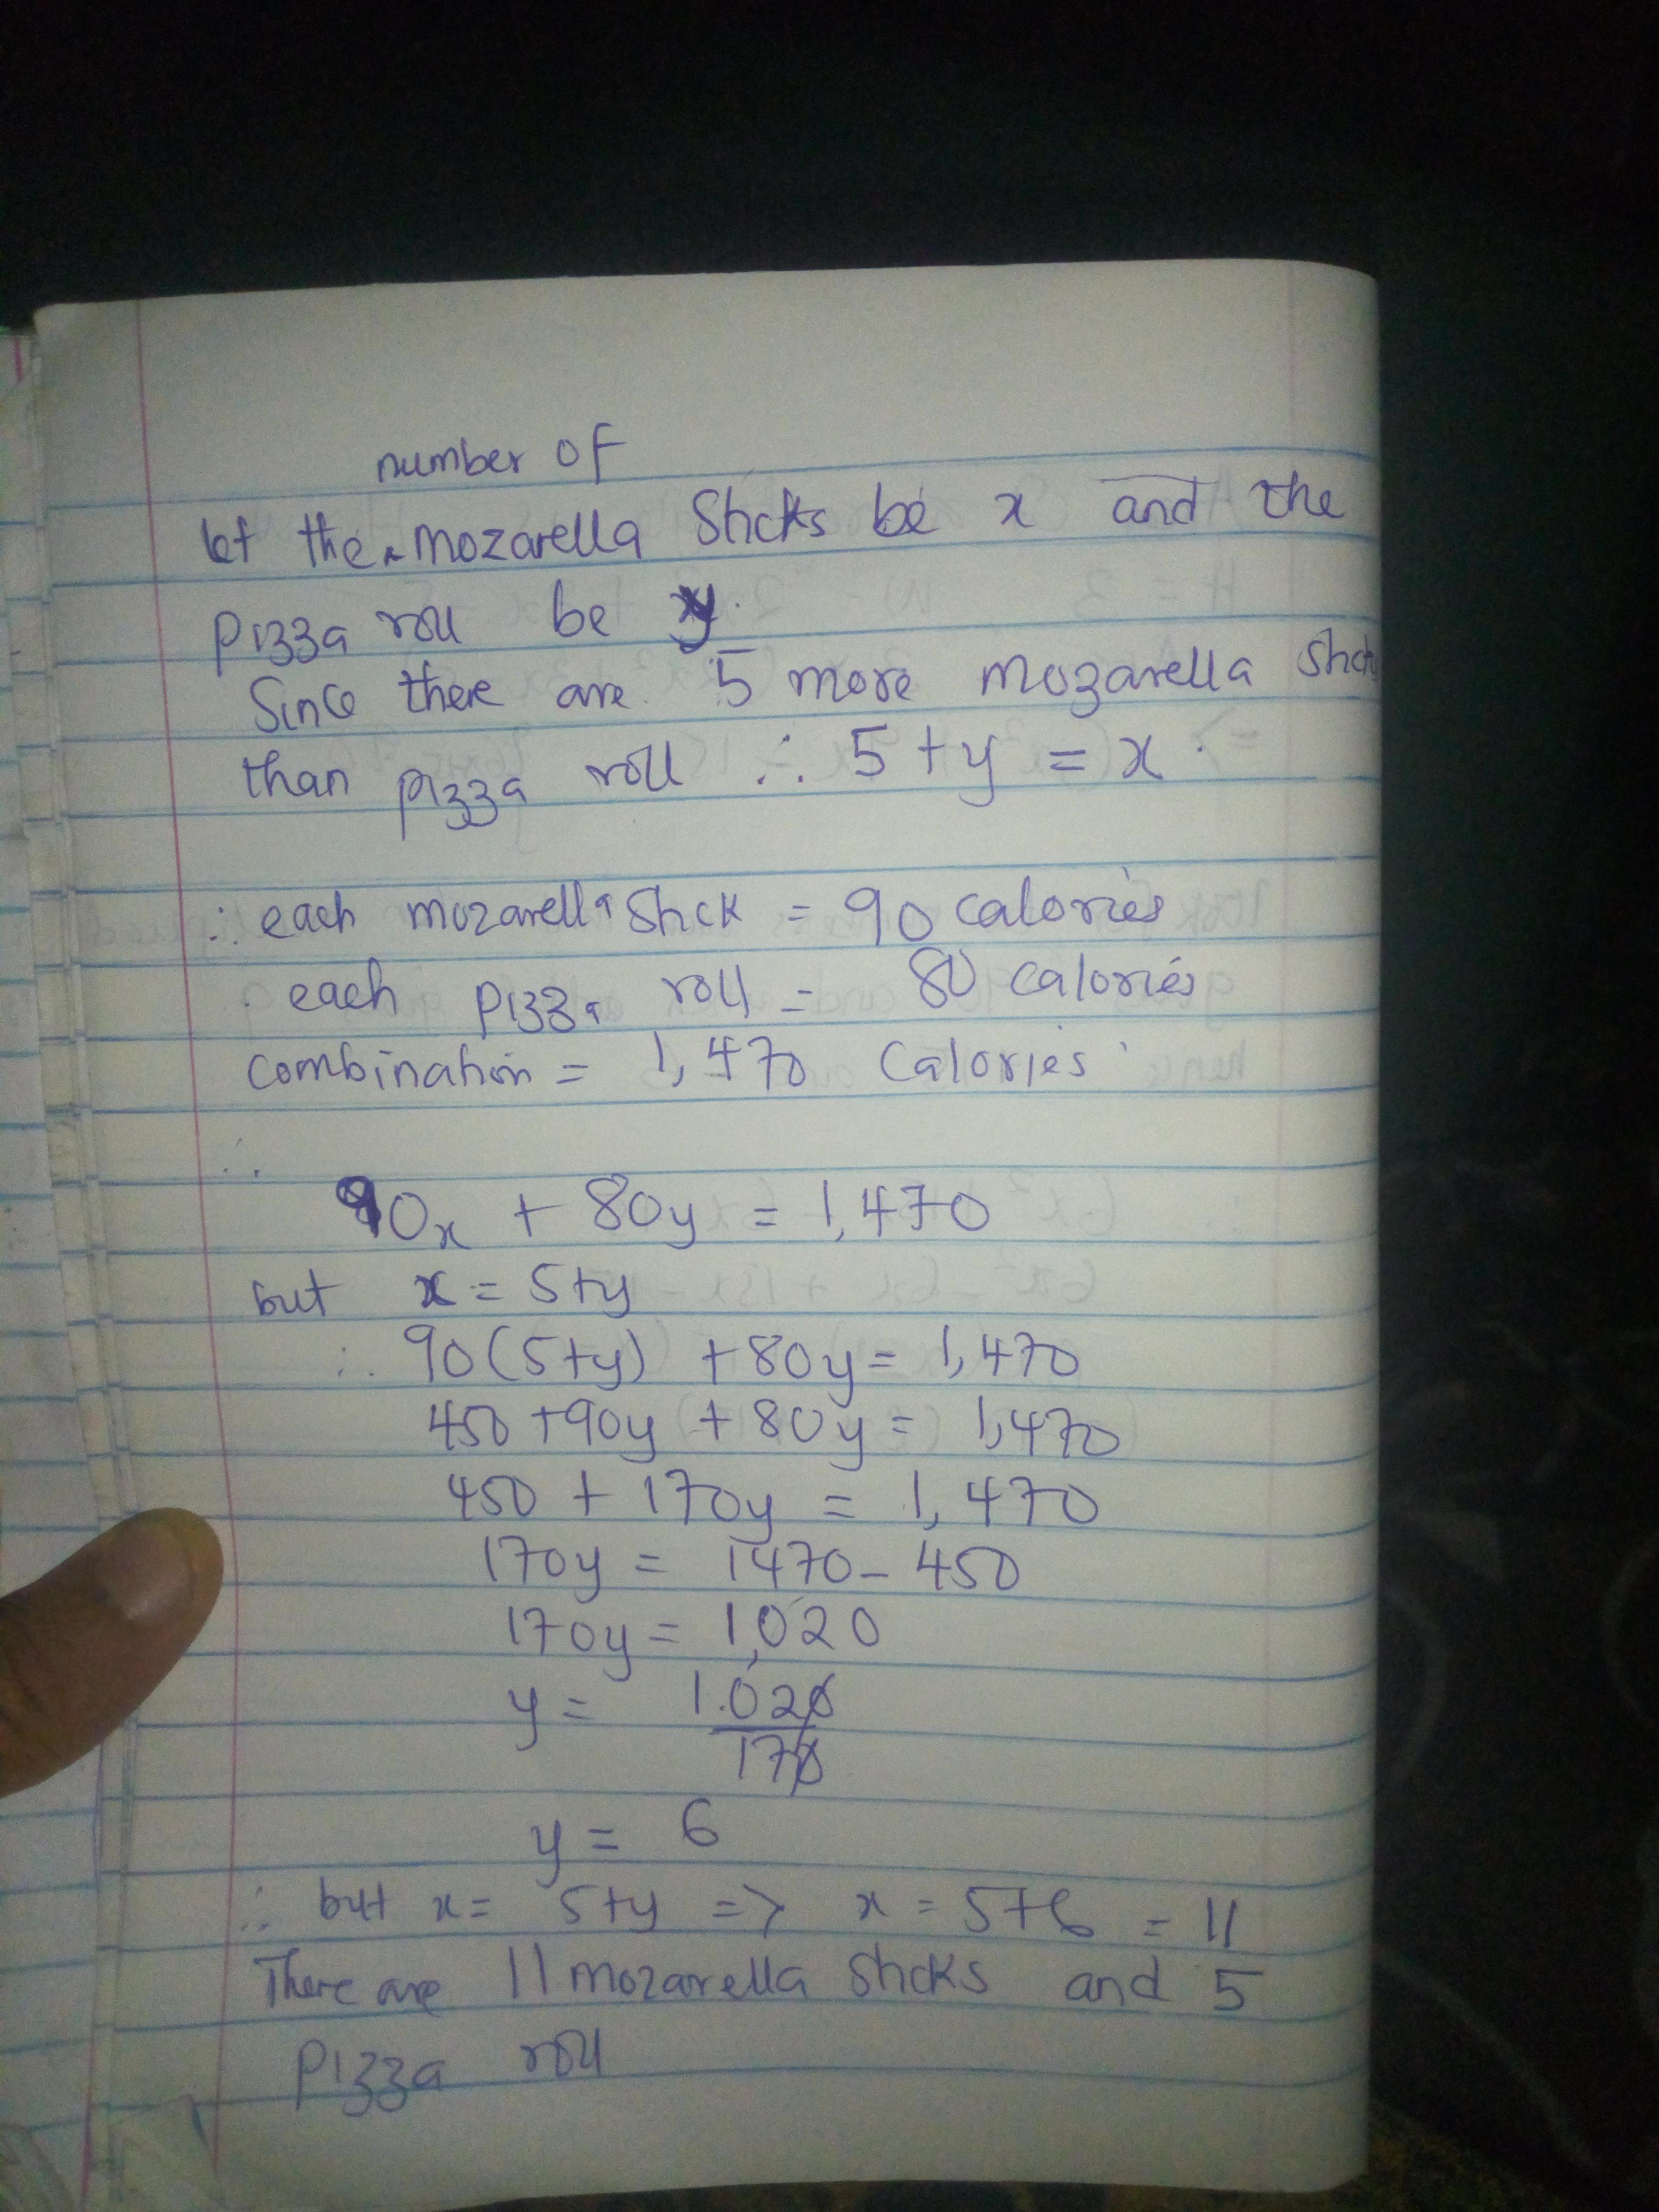 number of
let the mozarella Sticks be x and the
pizza roll be y.
Since there are 5 more mozarella Stick
than pizza roll ∴ 5 + y = x.
∴ each mozarella Stick = 90 calories
each pizza roll = 80 calories
combination = 1,470 Calories
∴
90x + 80y = 1,470
but x = 5+y
∴ 90(5+y) + 80y = 1,470
450 + 90y + 80y = 1,470
450 + 170y = 1,470
170y = 1470 - 450
170y = 1,020
y = 1.020
170
y = 6
∴ but x = 5+y => x = 5+6 = 11
There are 11 mozarella Sticks and 5
pizza roll